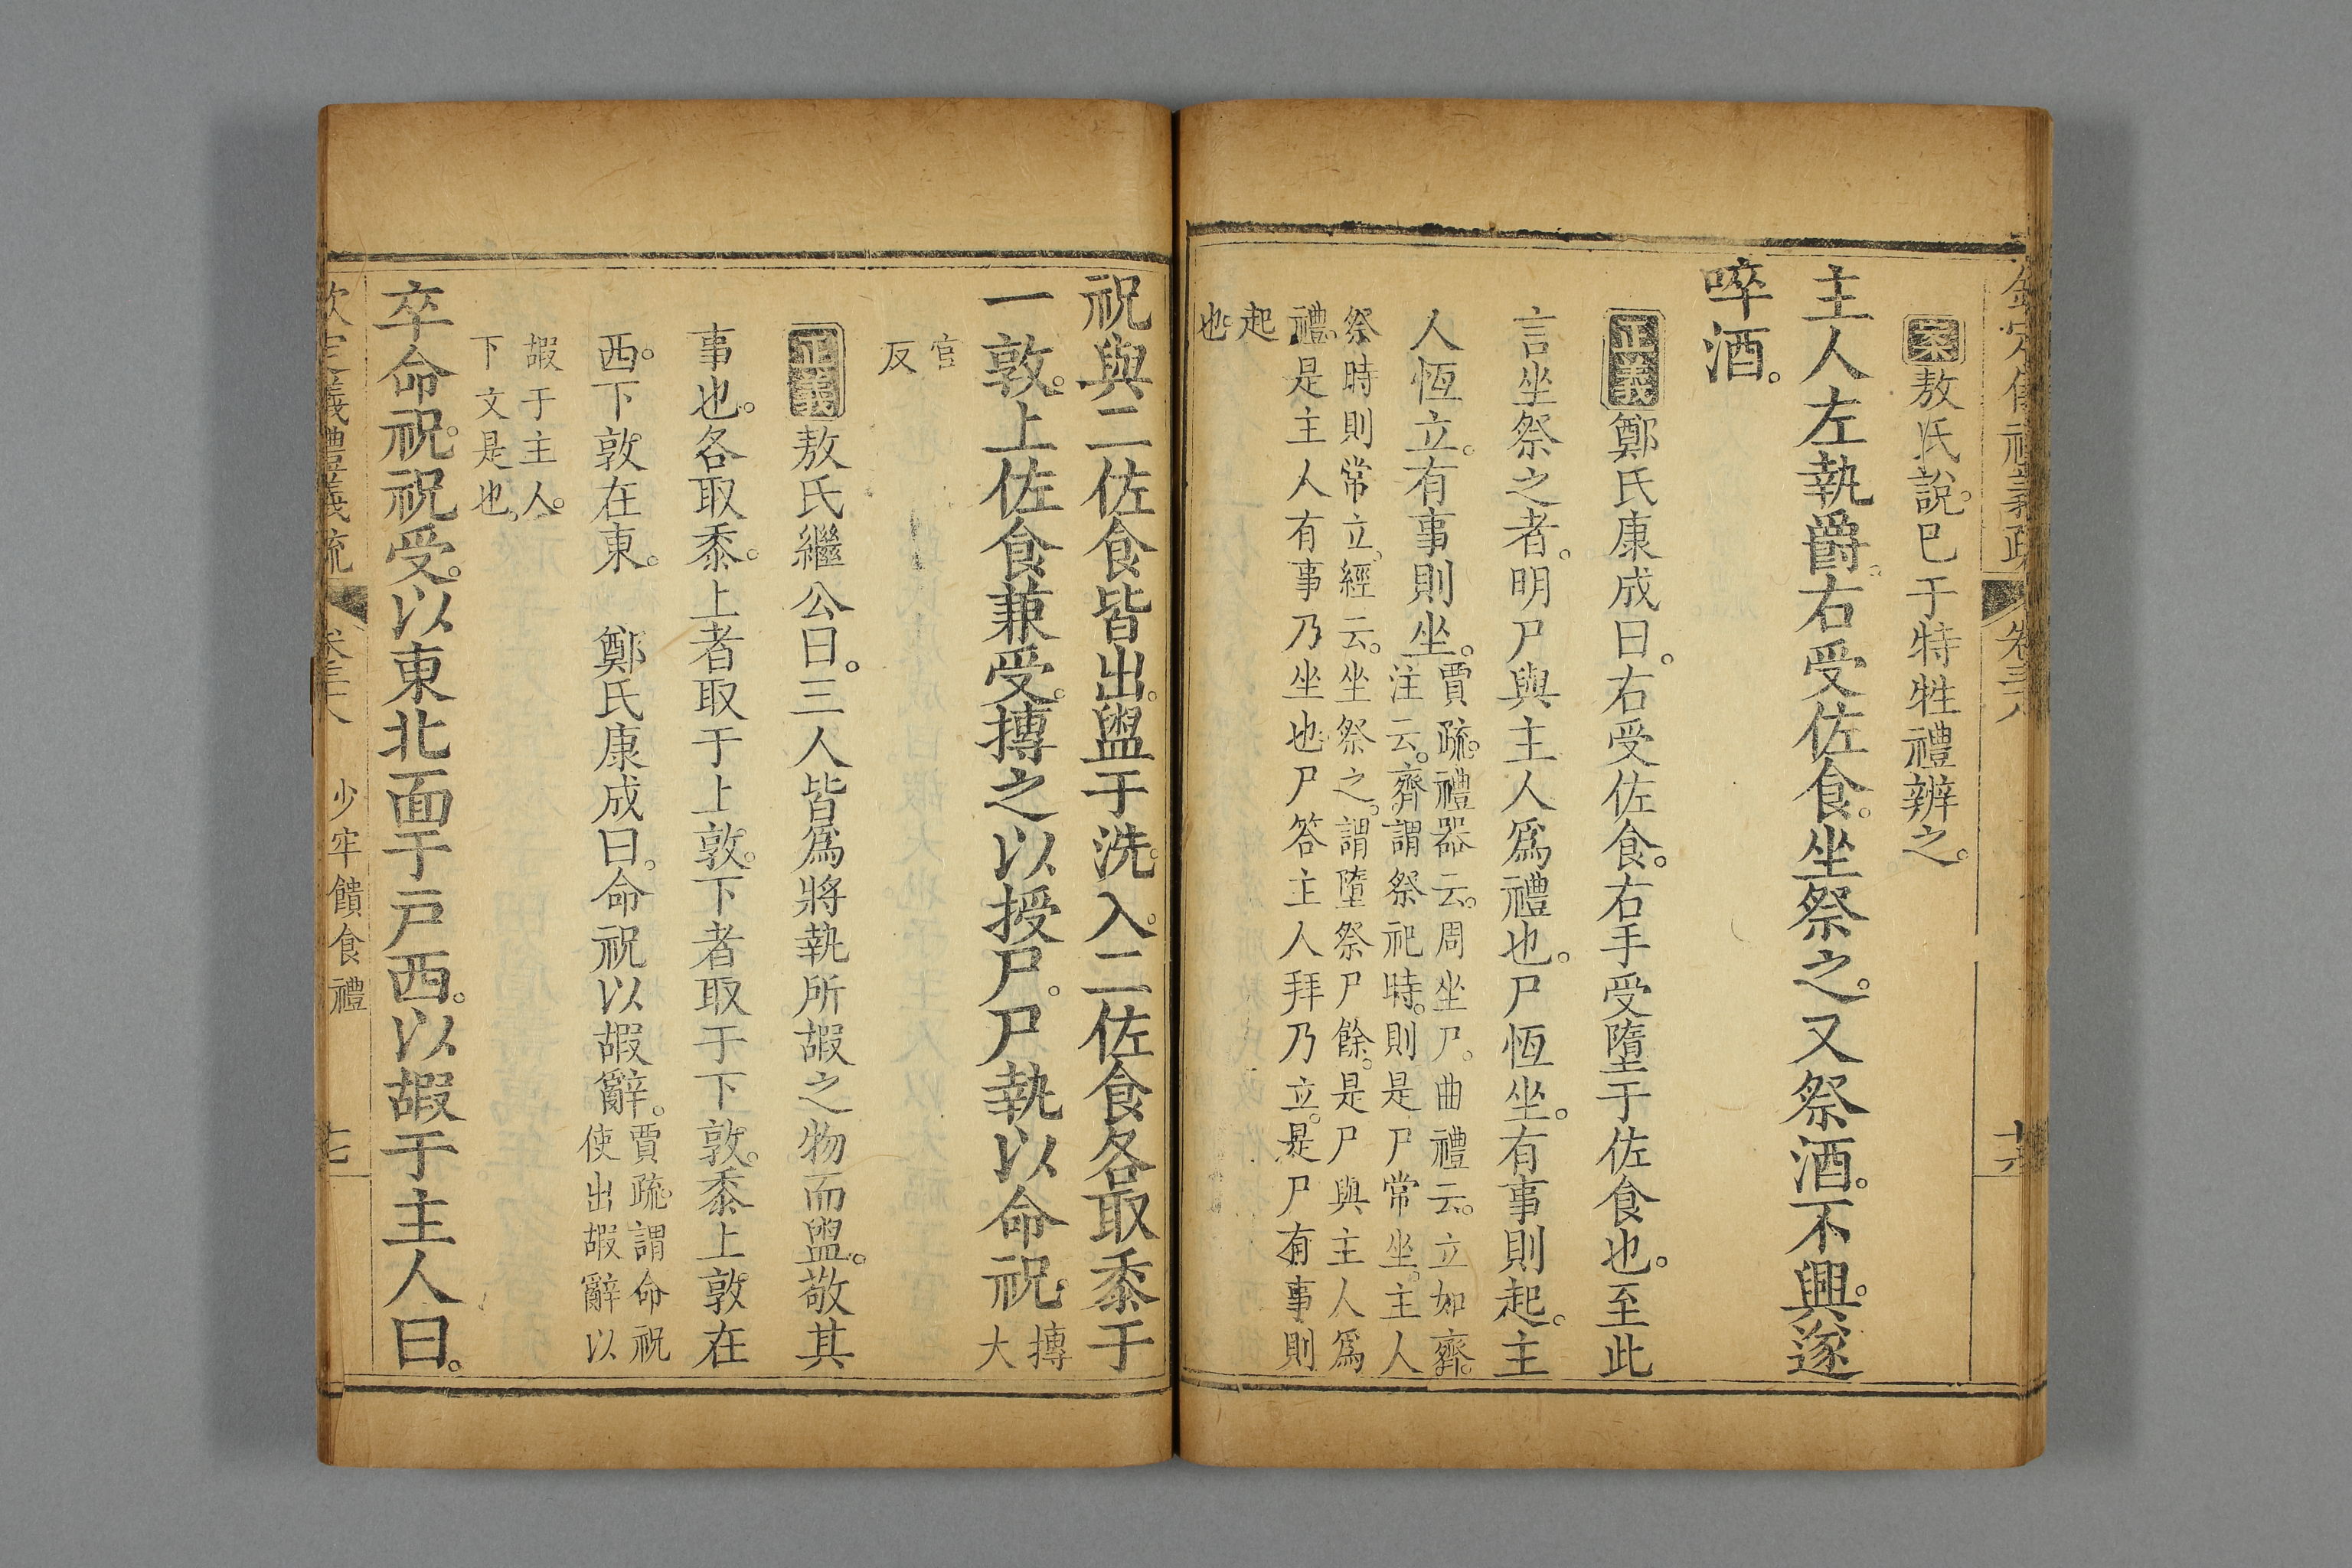 欽定儀禮義疏 卷三十八 十六
案敖氏說。已于特牲禮辨之。
主人左執爵。右受佐食。坐祭之。又祭酒。不興。遂
啐酒。
正義鄭氏康成曰。右受佐食。右手受墮于佐食也。至此
言坐祭之者。明尸與主人爲禮也。尸恆坐。有事則起。主
人恆立。有事則坐。
賈疏。禮器云。周坐尸。曲禮云。立如齊。
注云。齊謂祭祀時。則是尸常坐。主人
祭時則常立。經云。坐祭之。謂墮祭尸餘。是尸與主人爲
禮。是主人有事乃坐也。尸答主人拜乃立。是尸有事則
起
也。
祝與二佐食皆出。盥于洗。入。二佐食各取黍于
一敦。上佐食兼受。摶之以授尸。尸執以命祝。
摶
大
官
反
正義敖氏繼公曰。三人皆爲將執所嘏之物而盥。敬其
事也。各取黍。上者取于上敦。下者取于下敦。黍上敦在
西。下敦在東。 鄭氏康成曰。命祝以嘏辭。
賈疏。謂命祝
使出嘏辭以
嘏于主人。
下文是也。
卒命祝。祝受。以東北面于戶西。以嘏于主人曰。
欽定儀禮義疏 卷三十八 少牢饋食禮 十七